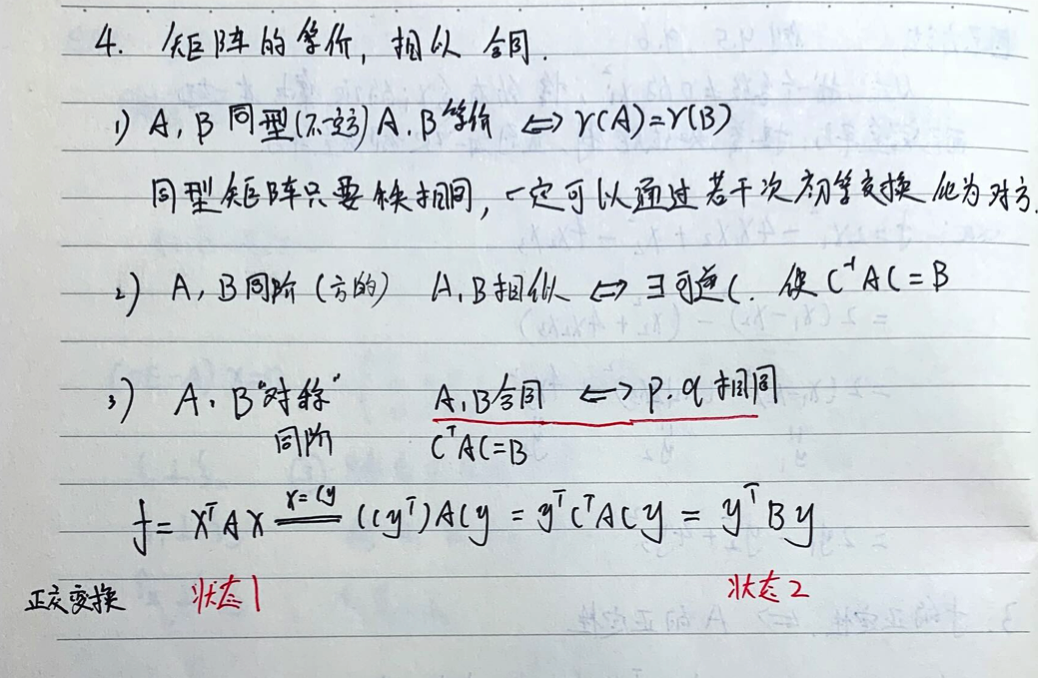 4. 矩阵的等价, 相似 合同.
1) A, B 同型(不一定方) A. B等价 ⟺ r(A)=r(B)
同型矩阵只要秩相同, 一定可以通过若干次初等变换 化为对方.
2) A, B同阶 (方的) A. B相似 ⟺ ∃可逆C. 使 C⁻¹AC = B
3) A. B"对称" A. B合同 ⟺ p. q 相同
同阶 CᵀAC=B
f = xᵀAx x=Cy (Cyᵀ)ACy = yᵀCᵀACy = yᵀBy
正交变换 状态1 状态2